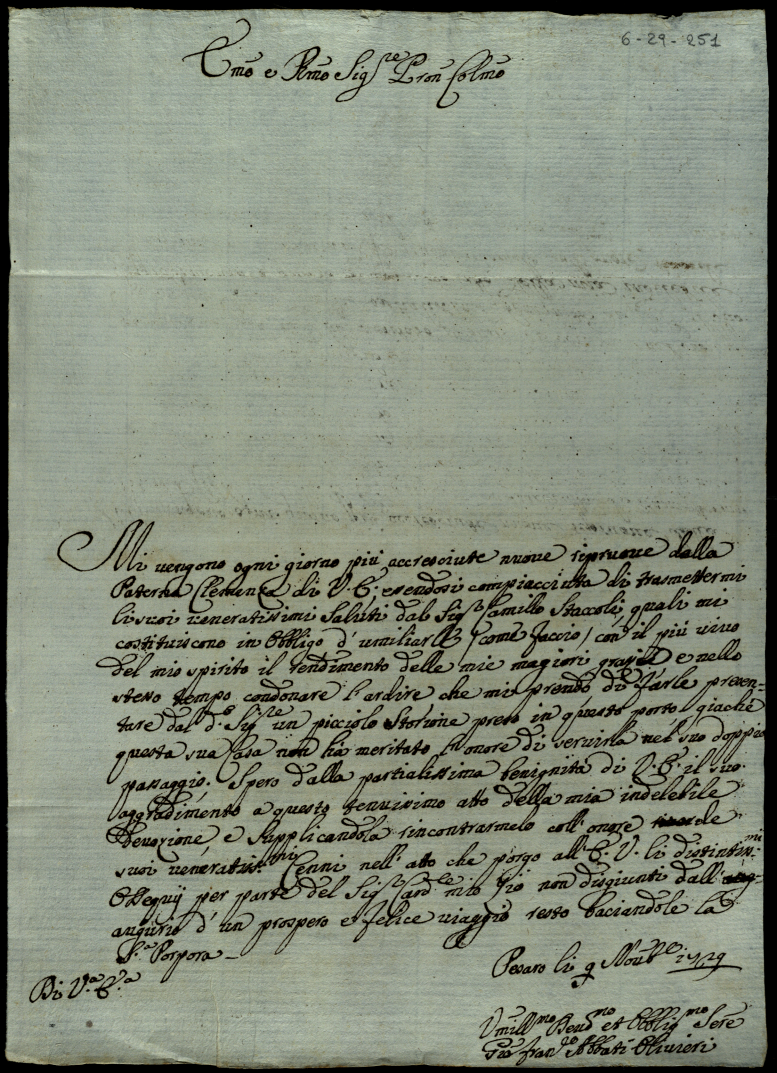 6-29-251
Emo e Rmo Sigre Pron Colmo
Mi vengono ogni giorno più accresciute nuove ripruove dalla
Paterna Clemenza di V. E. essendosi compiacciuta di trasmettermi
li suoi veneratissimi Saluti dal Sigr Camillo Staccoli, quali mi
costituiscono in obbligo d'umiliarle /come faccio/ con il più vivo
del mio spirito il rendimento delle mie magiori grazie e nello
stesso tempo condonare l'ardire che mi prendo di farle presen-
tare dal do Sigre un picciolo Storione preso in questo porto, giachè
questa sua Casa non hà meritato l'honore di servirla nel suo doppio
passaggio. Spero dalla partialissima benignità di V. E. il suo
aggradimento a questo tenuissimo atto della mia indelebile
Devozione, e supplicandola rincontrarmelo coll'onore de
suoi veneratissmi Cenni nell'atto che porgo all'E. V. li distintissmi
Ossequij per parte del Sigr Cardle mio Zio non disgiunti dall'
augurio d'un prospero e felice viaggio resto baciandole la
Sa Porpora
Pesaro li 9 Novbre 1729
Di Va Ea
Umillmo Devmo et Obbligmo Sere
Gio Franco Abbati Olivieri